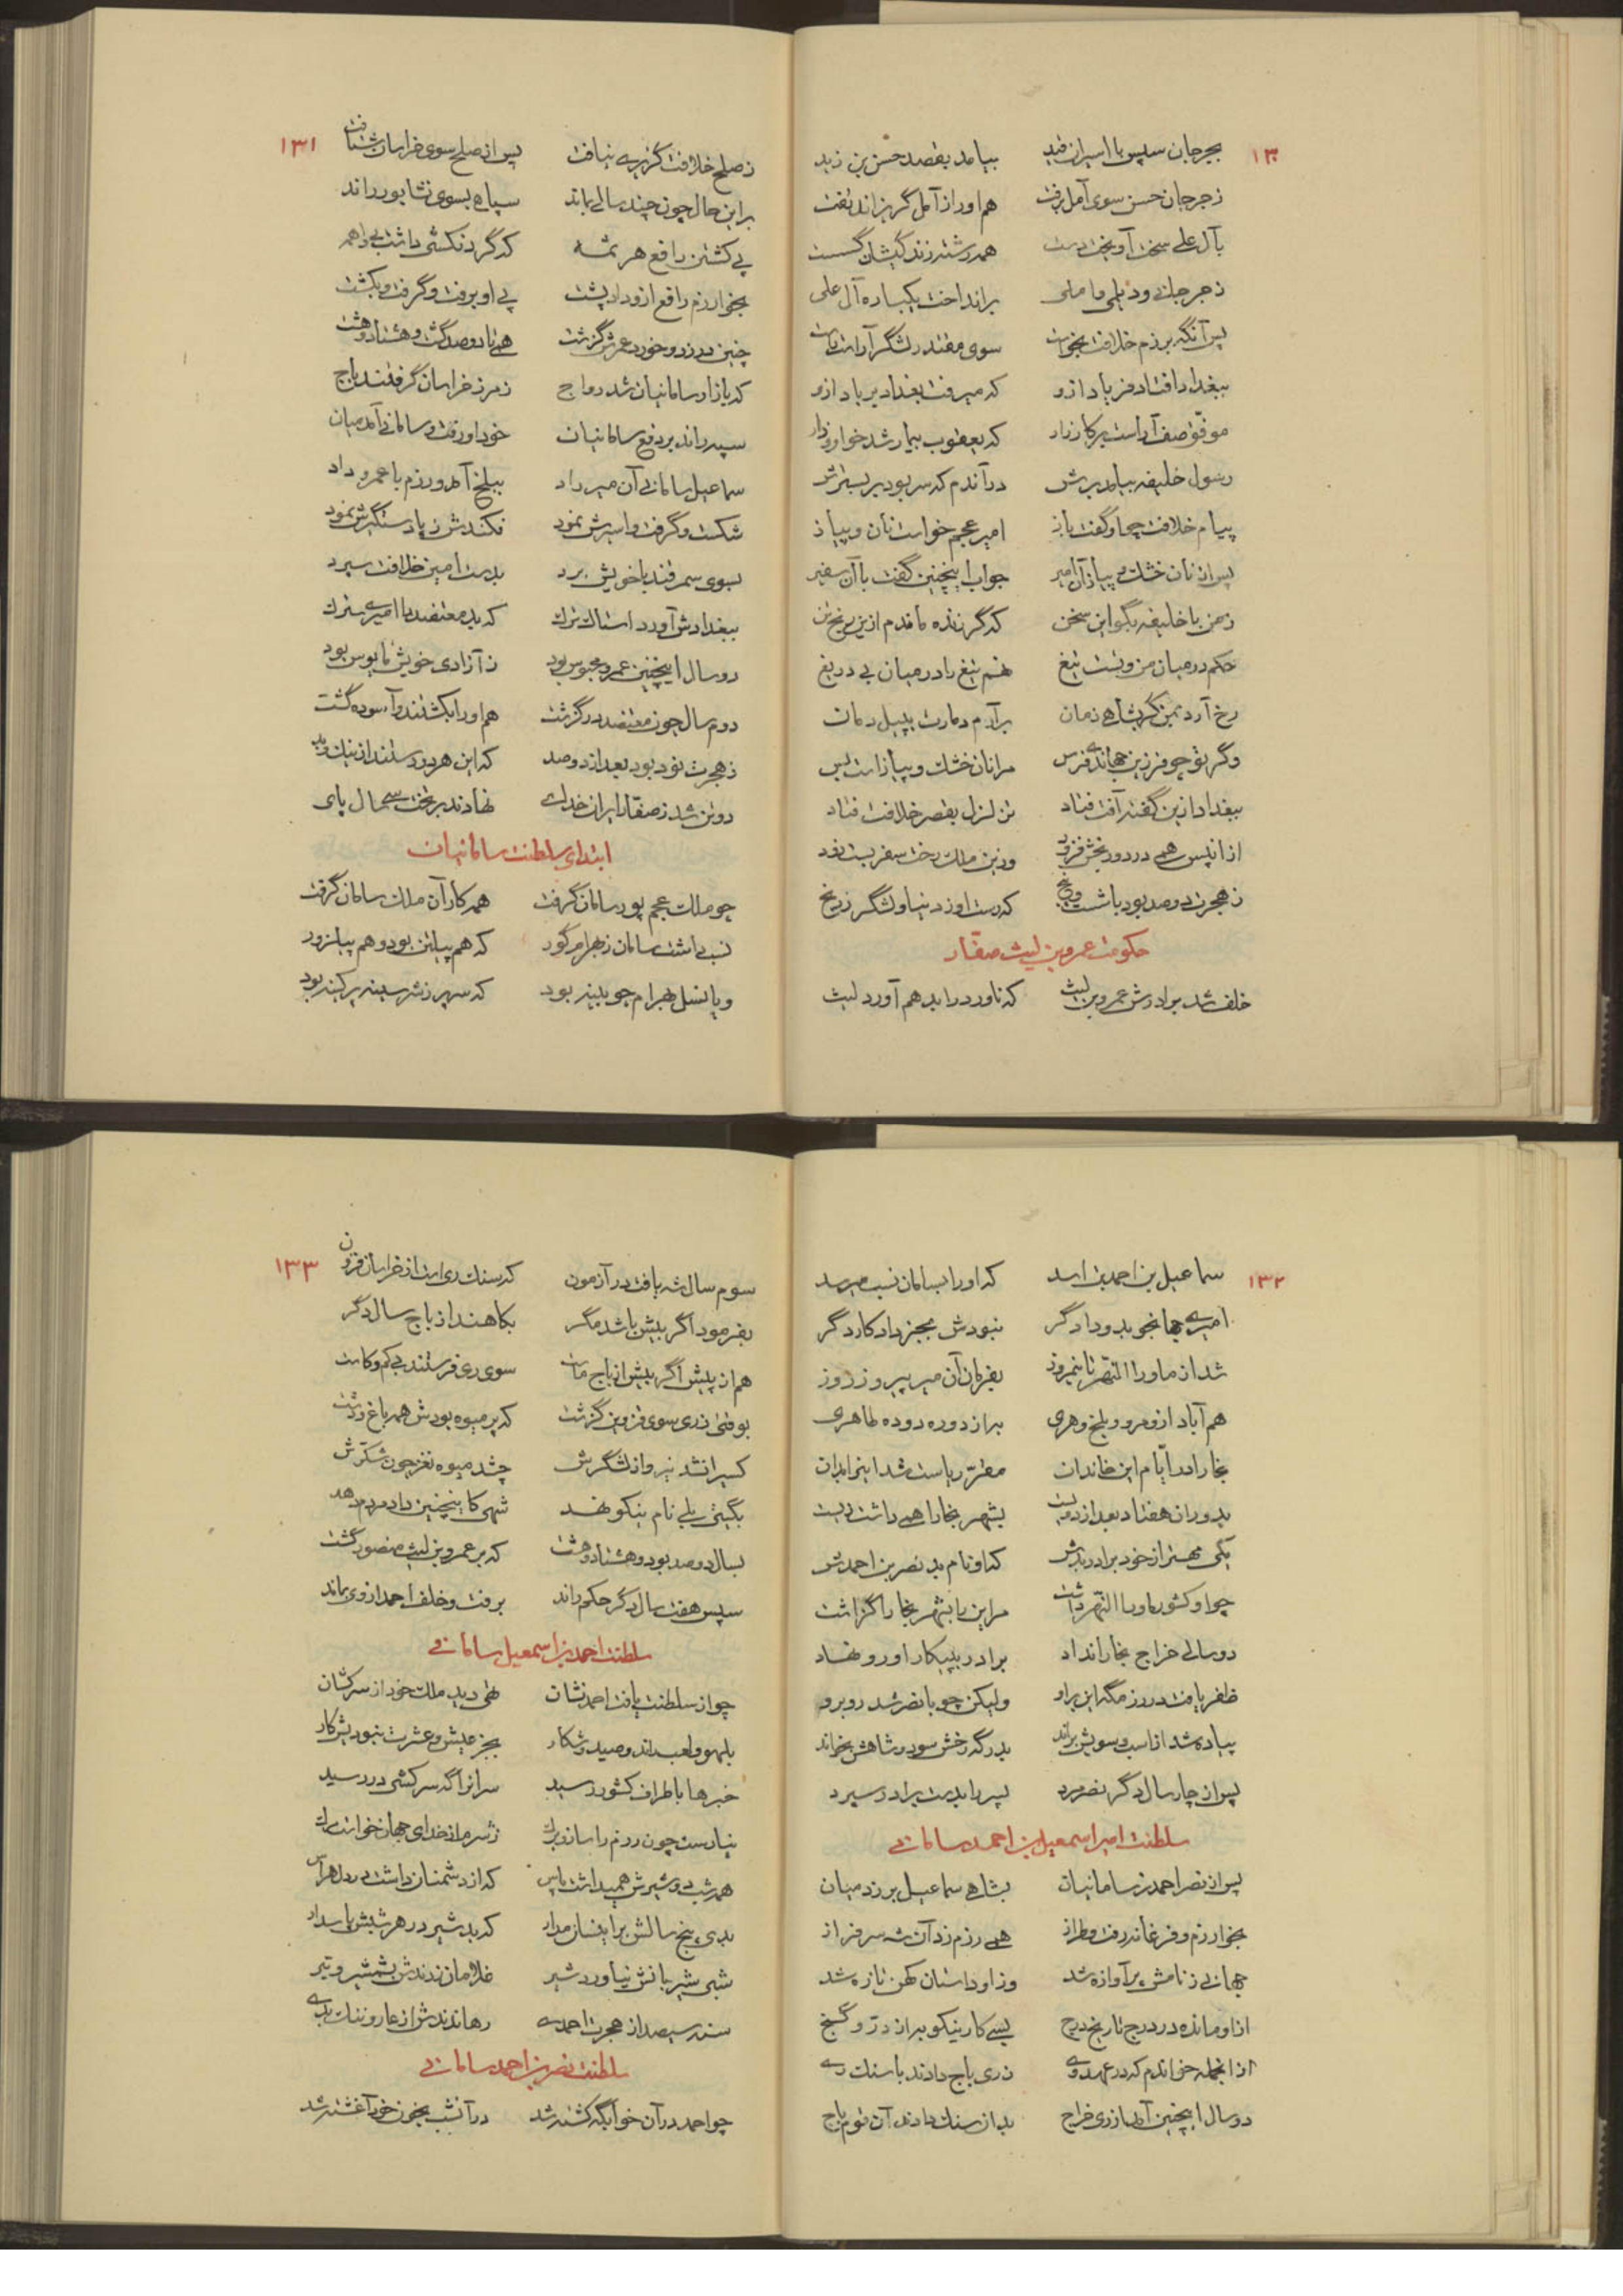 ۱۳۰
بجرجان سپس با اسیران قید بیامد بقصد حسن بن زید
ز جرجان حسن سوی آمل برفت هم او را ز آمل گریزاند تفت
بآل علی سخت آویخت دست همه رشته زندگیشان گسست
ز جرجانی و دیلمی و املی برانداخت یکباره آل علی
پس آنگه برزم خلافت بخواست سوی مقتدر لشگر آراست راست
ببغداد افتاد فریاد ازو که میرفت بغداد بر باد ازو
موفق صف آراست بر کارزار که یعقوب بیمار شد خوار و زار
رسول خلیفه بیامد برش در آندم که سر بود بر بسترش
پیام خلافت چو او گفت باز امیر عجم خواست نان و پیاز
پس از نان خشک و پیاز آن امیر جواب اینچنین گفت با آن سفیر
ز من با خلیفه بگو این سخن که گر زنده ماندم ازین رنج تن
حکم در میان من و تست تیغ نهم تیغ را در میان بی دریغ
رخ آرد بمن گر بشاهی زمان برآرم دمارت بپیل دمان
وگر تو چو فرزین جهاندی فرس مرا نان خشک و پیاز است بس
ببغداد ازین گفته آفت فتاد تزلزل بقصر خلافت فتاد
از آنپس همی درد و رنجش فزود وزین ملک رخت سفر بست زود
ز هجرت دو صد بود با شست و پنج که رست او ز دنیا و لشگر ز رنج
حکومت عمرو بن لیث صفار
خلف شد برادرش عمرو بن لیث که ناورد را بد هم آورد لیث
۱۳۱
ز صلح خلافت گزیری نیافت پس از صلح سوی خراسان شتافت
بر این حال چون چند سالی بماند سپاهی بسوی نشابور راند
پی کشتن رافع هرثمه که گردنکشی داشت بی واهمه
بخوارزم رافع ازو داد پشت پی او برفت و گرفت و بکشت
چنین در زد و خورد عمرش گذشت همی تا دو صد گشت و هشتاد و هشت
که بازار سامانیان شد رواج ز مرز خراسان گرفتند باج
سپه راند بر دفع سامانیان خود او رفت و سامانی آمد میان
سماعیل سامانی آن میر راد ببلخ آمد و رزم با عمرو داد
شکست و گرفت و اسیرش نمود فکندش ز پا دستگیرش نمود
بسوی سمرقند با خویش برد بدست امین خلافت سپرد
ببغدادش آورد اشناک ترک که بد معتضد را امیری سترک
دو سال اینچنین عمرو محبوس بود ز آزادی خویش مایوس بود
دوم سال چون معتضد در گذشت هم او را بکشتند و آسوده گشت
ز هجرت نود بود بعد از دو صد که این هر دو رستند از نیک و بد
دو تن شد ز صفار ایران خدای نهادند بر تخت سی سال پای
ابتدای سلطنت سامانیان
چو ملک عجم پور سامان گرفت همه کار آن ملک سامان گرفت
نسب داشت سامان ز بهرام گور که هم پیلتن بود و هم پیلزور
و یا نسل بهرام چوبینه بود که سهر زشه سینه پر کینه بود
۱۳۲
سماعیل بن احمد بن اسد که او را بسامان نسب میرسد
امیری جهانجوی بد و دادگر نبودش بجز داد کار دگر
شد از ماوراء النهر تا نیمروز بفرمان آن میر پیروز روز
هم آباد ازو مرو و بلخ و هری بر از دوره دوده طاهری
بخارا در ایام این خاندان مقر ریاست شد اینرا بدان
بدوران هفتاد بعد از دویست بشهر بخارا همی داشت زیست
یکی مهتر از خود برادر بدش که او نام بد نصر بن احمدش
چو او کشور ماوراء النهر داشت مر این را بشهر بخارا گذاشت
دو سالی خراج بخارا نداد برادر بپیکار او رو نهاد
ظفر یافت در رزمگه این بر او ولیکن چو با نصر شد روبرو
پیاده شد از اسب و سویش براند بدرگه رخش سود و شاهش بخواند
پس از چار سال دگر نصر مرد پسر را بدست برادر سپرد
سلطنت امیر اسمعیل بن احمد سامانی
پس از نصر احمد ز سامانیان بشاهی سماعیل بر زد میان
بخوارزم و فرغانه رفت و طراز همی رزم زد آن شه سرفراز
جهانی ز نامش پر آوازه شد وز او داستان کهن تازه شد
از او مانده در درج تاریخ درج بسی کار نیکو به از در و گنج
از آنجمله خواندم که در عهد وی ز ری باج دادند با سنگ ری
دو سال اینچنین آمد از ری خراج بد از سنگ دادند آن قوم باج
۱۳۳
سوم سال شه یافت در آزمون که سنگ ری است از خراسان فزون
بفرمود اگر بیش باشد مگر بکاهند از باج سال دگر
هم از پیش اگر بیش از باج ماست سوی ری فرستند بی کم و کاست
بوقتی ز ری سوی قزوین گذشت که پر میوه بودش همه باغ و دشت
کسیرا نشد نیرو از لشگرش چشد میوه نغز چون شکرش
بگیتی بلی نام نیکو نهد شهی کاینچنین داد مردم دهد
بسال دو صد بود و هشتاد و هشت که بر عمرو بن لیث منصور گشت
سپس هفت سال دگر حکم راند برفت و خلف احمد از وی بماند
سلطنت احمد بن اسمعیل سامانی
چو از سلطنت یافت احمد نشان تهی دید ملک خود از سرکشان
بلهو و لعب ماند و صید و شکار بجز عیش و عشرت نبودیش کار
خبرها باطراف کشور رسید سرانرا گه سرکشی در رسید
نیارست چون رزم را ساز و برگ ز شرم از خدای جهان خواست مرگ
همه شب دو شیرش همیداشت پاس که از دشمنان داشت در دل هراس
بدی پنج سالش بر اینسان مدار که بد شیر در هر شبش پاسدار
شبی شیربانش نیاورد شیر غلامان زدندش بشمشیر و تیر
سنه سیصد از هجرت احمدی رهاندندش از عار و ننگ بدی
سلطنت نصر بن احمد سامانی
چو احمد در آن خوابگه کشته شد در آنشب بخون خود آغشته شد